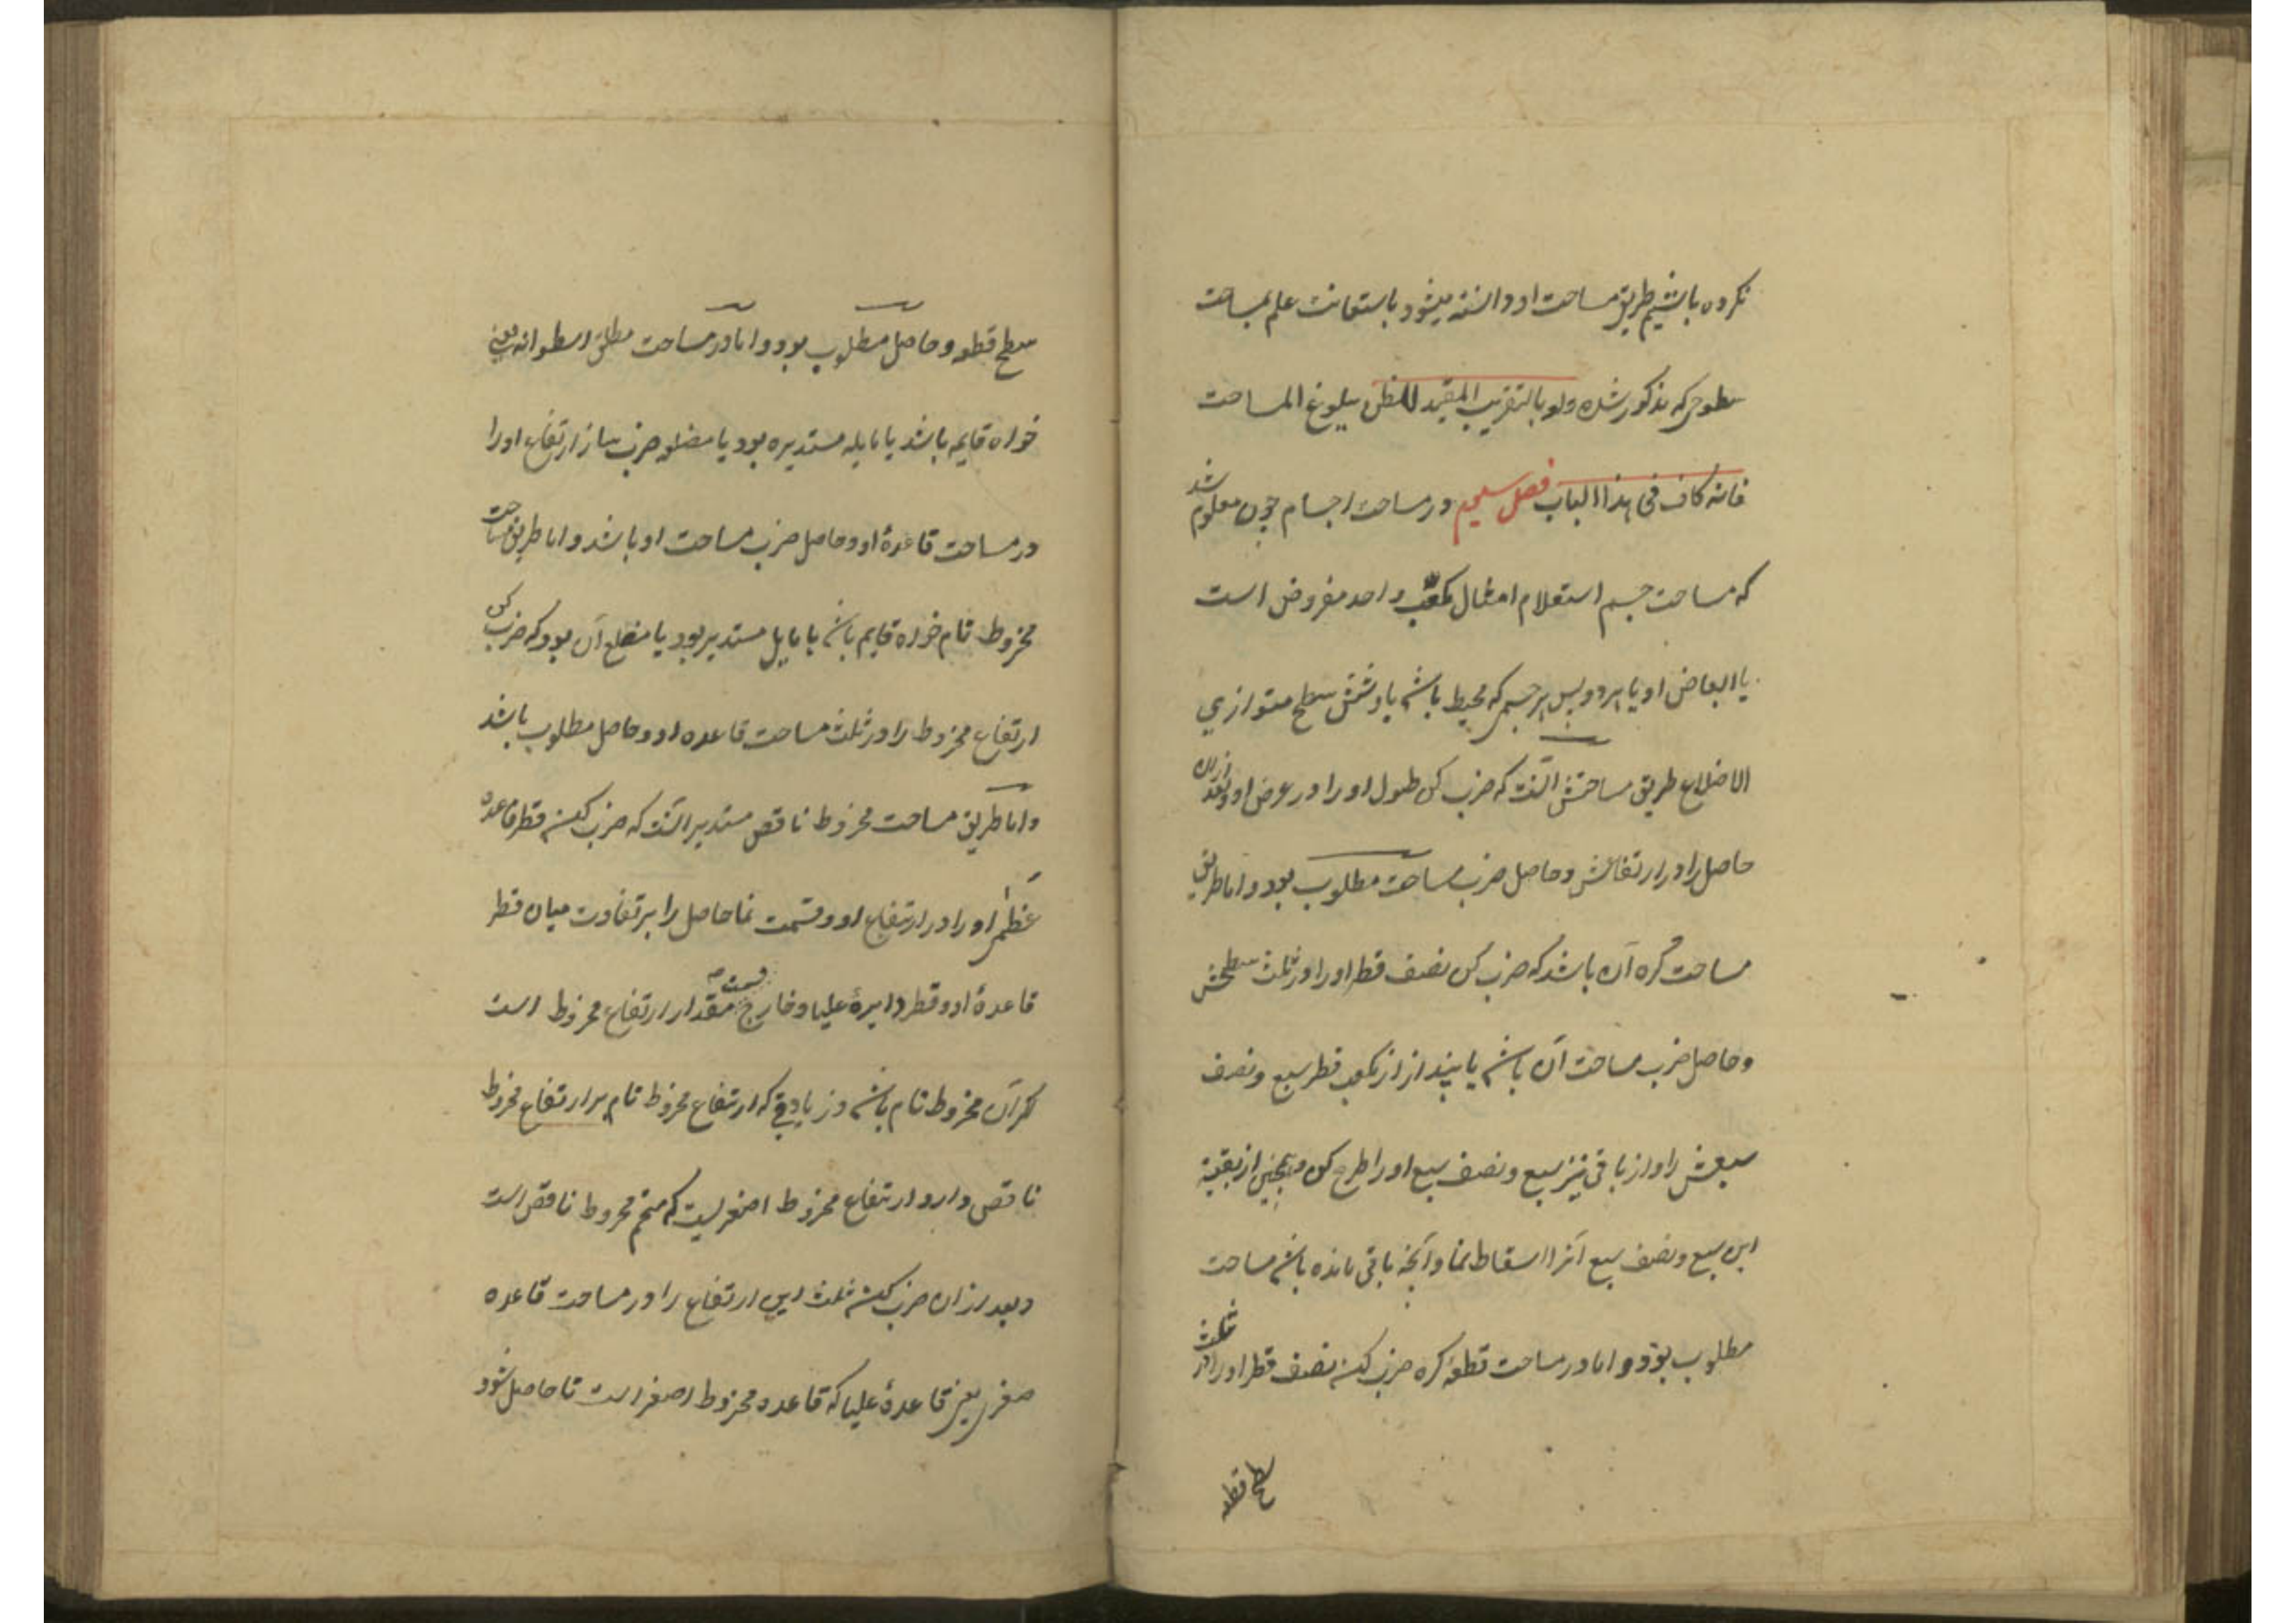 نکرده باشیم طریق مساحت او دانسته میشود باستعانت علم بمساحت
سطوحی که مذکور شده ولو بالتقریب المفید للظن ببلوغ المساحت
فانه کاف فی هذا الباب فصل سیم در مساحت اجسام چون معلوم شد
که مساحت جسم استعلام امثال مکعب واحد مفروض است
یا ابعاض او یا هر دو پس هر جسمی که محیط باشد باو شش سطح متوازی
الاضلاع طریق مساحتش آنست که ضرب کن طول او را در عرض او و بعد ازان
حاصل را در ارتفاعش و حاصل ضرب مساحت مطلوب بود و اما طریق
مساحت کره آن باشد که ضرب کن نصف قطر او را در ثلث سطحش
و حاصل ضرب مساحت آن باشد یا بینداز از مکعب قطر سبع و نصف
سبعش را و از باقی نیز سبع و نصف سبع او را طرح کن و همچنین از بقیة
این سبع و نصف سبع آنرا اسقاط نما و آنچه باقی مانده باشد مساحت
مطلوب بود و اما در مساحت قطعه کره ضرب کن نصف قطر او را در ثلث
سطح قطعه
سطح قطعه و حاصل مطلوب بود و اما در مساحت مطلق اسطوانه یعنی
خواه قایمه باشد یا مایله مستدیره بود یا مضلعه ضرب ساز ارتفاع او را
در مساحت قاعدهٔ او و حاصل ضرب مساحت او باشد و اما طریق مساحت
مخروط تام خواه قایم باشد یا مایل مستدیر بود یا مضلع آن بود که ضرب کن
ارتفاع مخروط را در ثلث مساحت قاعده او و حاصل مطلوب باشد
و اما طریق مساحت مخروط ناقص مستدیر آنست که ضرب کن قطر قاعده
عظمی او را در ارتفاع او و قسمت نما حاصل را بر تفاوت میان قطر
قاعدهٔ او و قطر دایرهٔ علیا و خارج قسمت مقدار ارتفاع مخروط است
کر آن مخروط تام باشد و زیادتی که ارتفاع مخروط تام بر ارتفاع مخروط
ناقص دارد ارتفاع مخروط اصغریست که متمم مخروط ناقص است
و بعد ازان ضرب کن ثلث این ارتفاع را در مساحت قاعده
صغری یعنی قاعدهٔ علیا که قاعده مخروط اصغر است تا حاصل شود